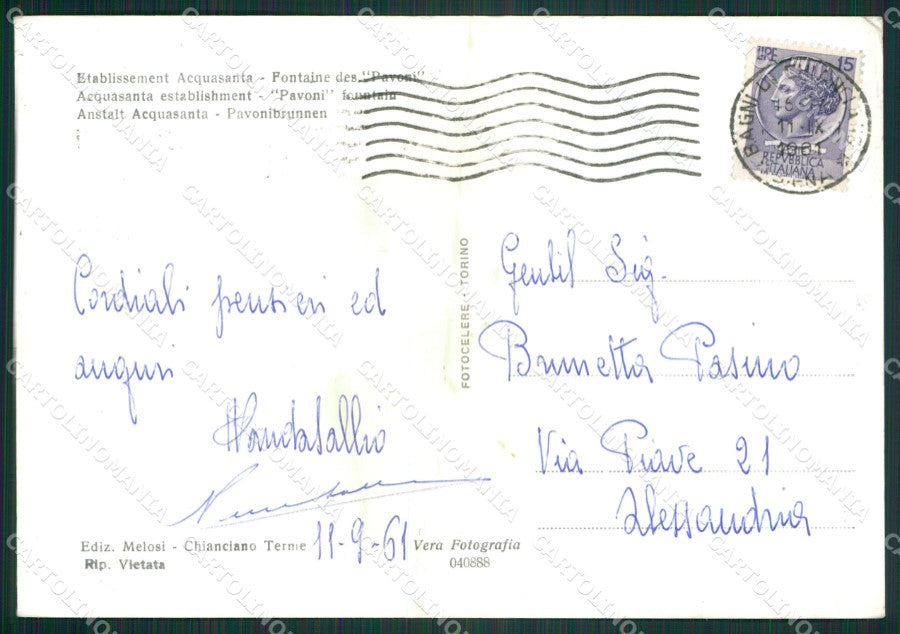 Etablissement Acquasanta - Fontaine des "Pavoni"
Acquasanta establishment - "Pavoni" fountain
Anstalt Acquasanta - Pavonibrunnen
LIRE 15
BAGNI DI
11 IX
1961
REPVBBLICA
ITALIANA
FOTOCELERE - TORINO
Cordiali pensieri ed
auguri
Gentil Sig.
Brunetta Pasino
Via Piave 21
Alessandria
11-9-61
Ediz. Melosi - Chianciano Terme
Rip. Vietata
Vera Fotografia
040888
CARTOLINOMANIA